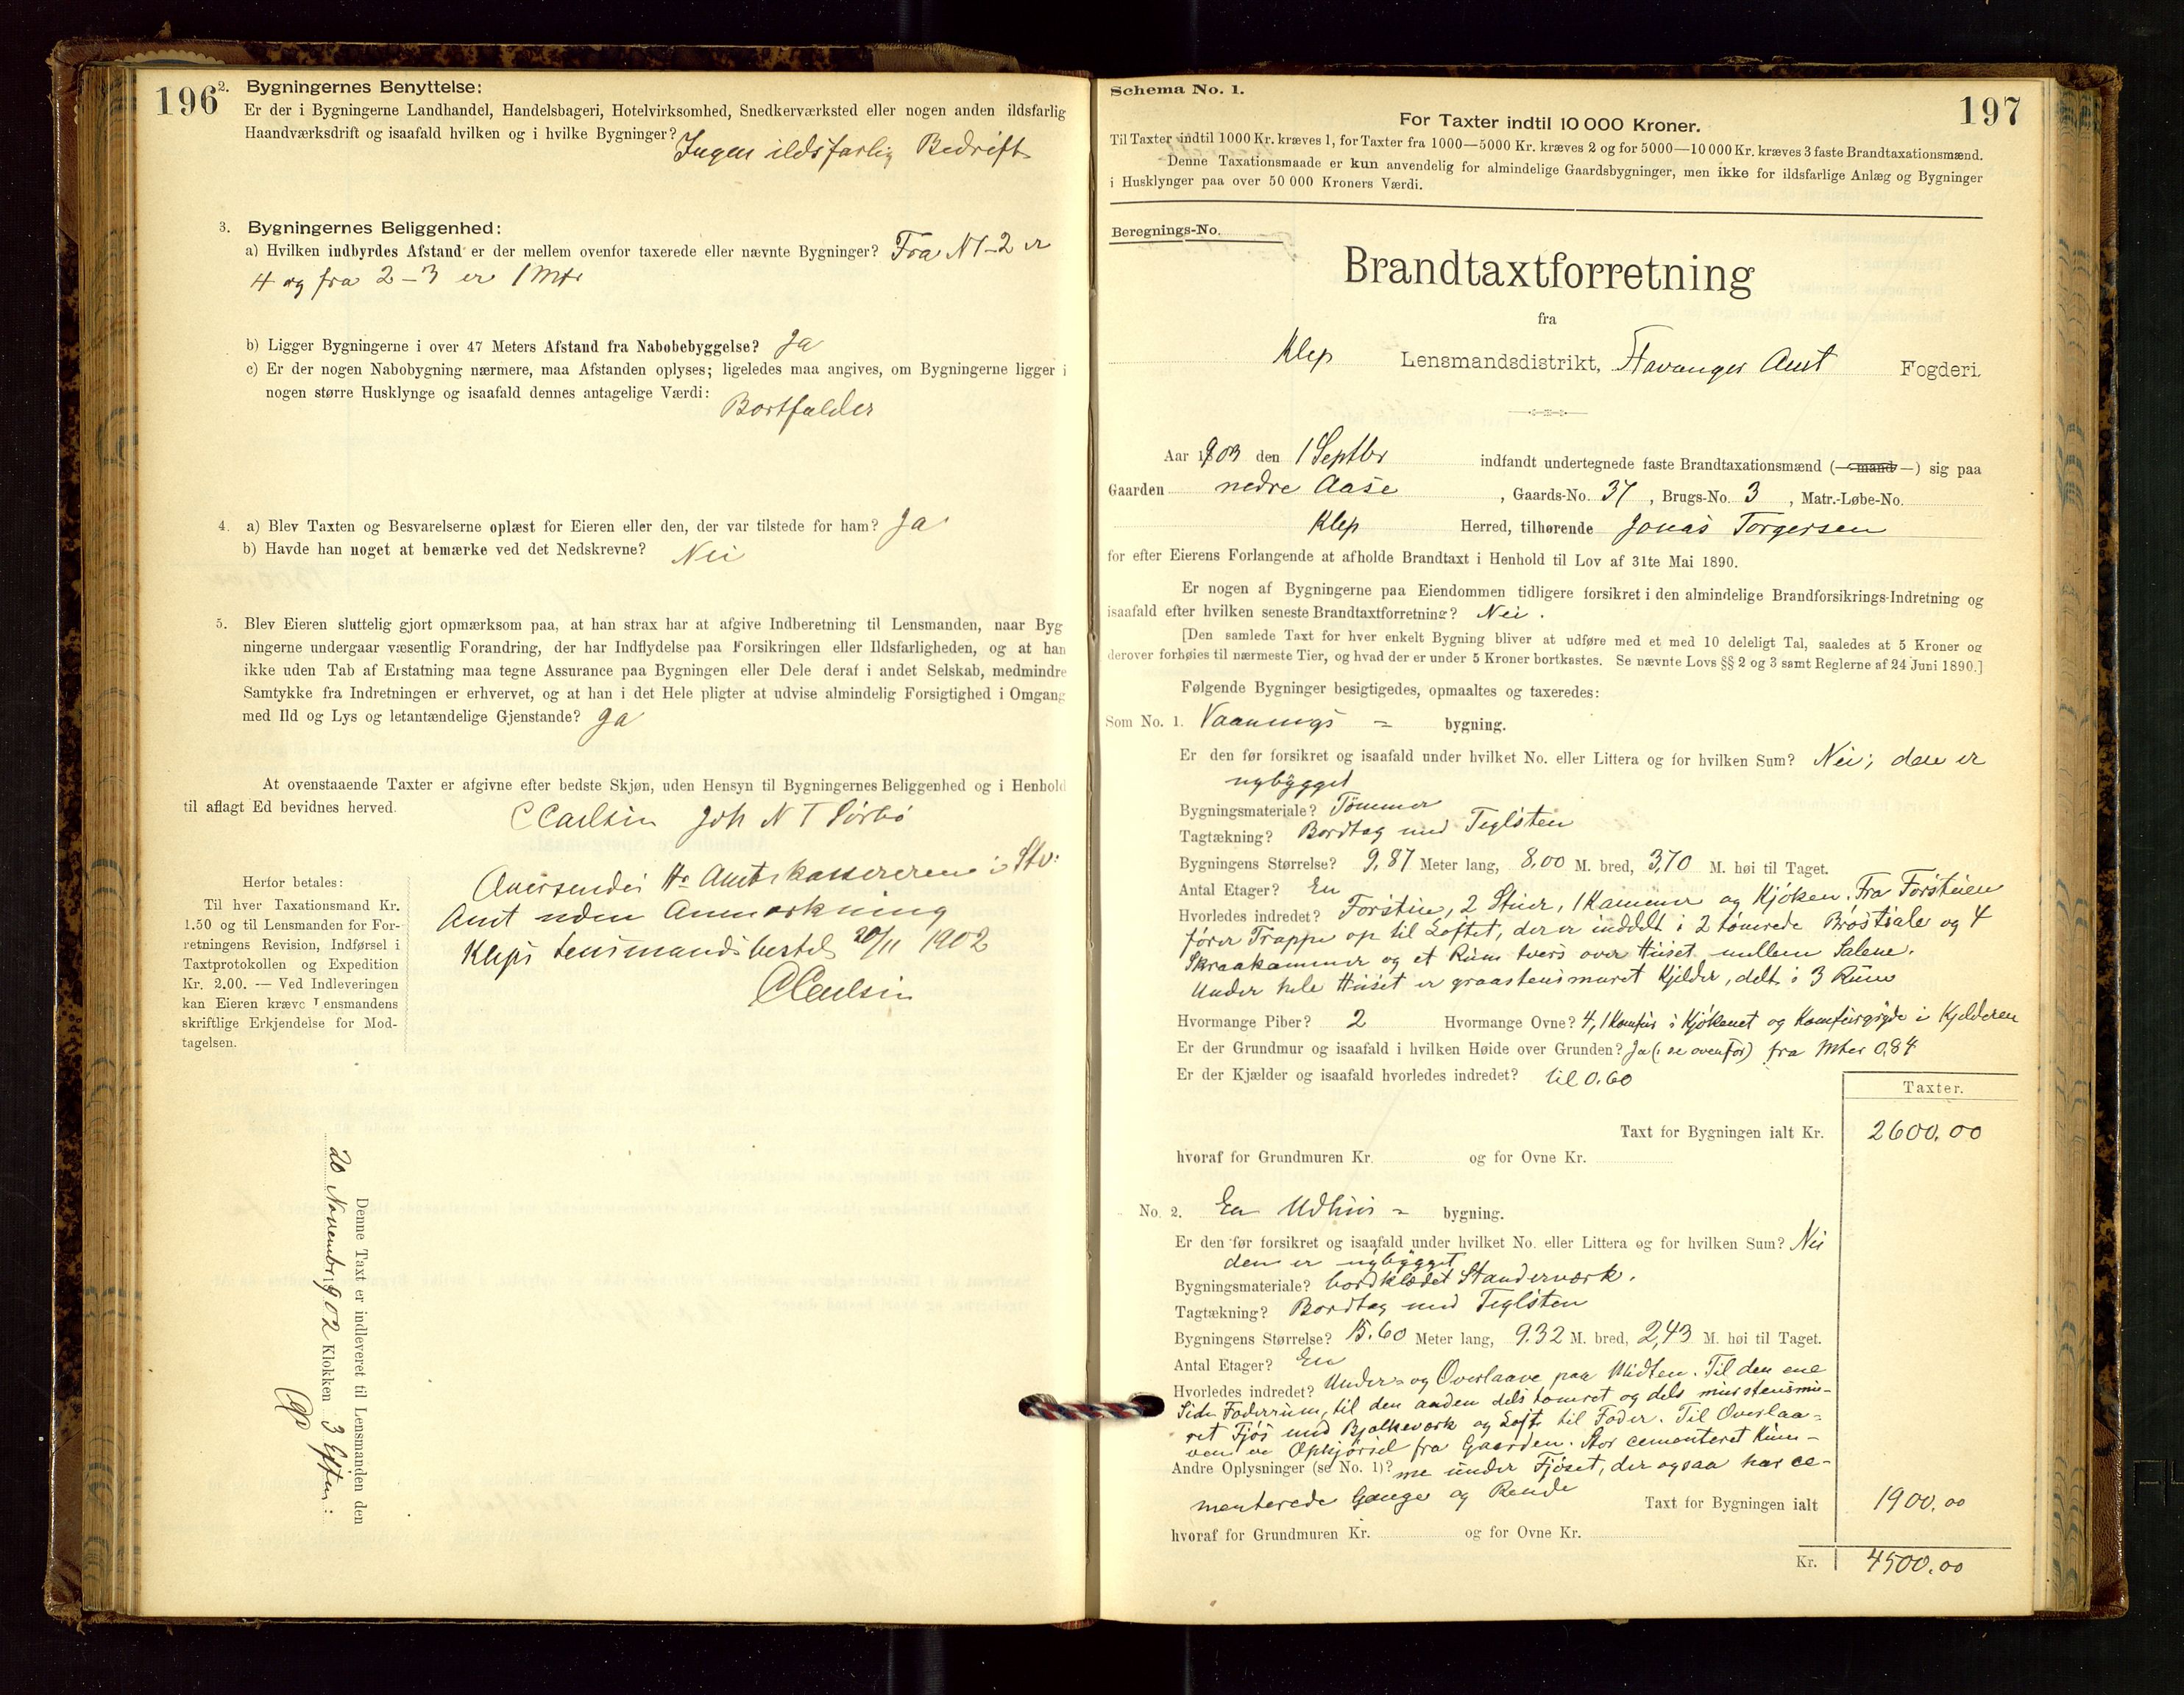 196
2. Bygningernes Benyttelse:
Er der i Bygningerne Landhandel, Handelsbageri, Hotelvirksomhed, Snedkerværksted eller nogen anden ildsfarlig
Haandværksdrift og isaafald hvilken og i hvilke Bygninger? Ingen ildsfarlig Bedrift
3. Bygningernes Beliggenhed:
a) Hvilken indbyrdes Afstand er der mellem ovenfor taxerede eller nævnte Bygninger? Fra N 1-2 er
4 og fra 2-3 er 1 Mtr
b) Ligger Bygningerne i over 47 Meters Afstand fra Nabobebyggelse? Ja
c) Er der nogen Nabobygning nærmere, maa Afstanden oplyses; ligeledes maa angives, om Bygningerne ligger i
nogen større Husklynge og isaafald dennes antagelige Værdi: Bortfalder
4. a) Blev Taxten og Besvarelserne oplæst for Eieren eller den, der var tilstede for ham? Ja
b) Havde han noget at bemærke ved det Nedskrevne? Nei
5. Blev Eieren sluttelig gjort opmærksom paa, at han strax har at afgive Indberetning til Lensmanden, naar Byg
ningerne undergaar væsentlig Forandring, der har Indflydelse paa Forsikringen eller Ildsfarligheden, og at han
ikke uden Tab af Erstatning maa tegne Assurance paa Bygningen eller Dele deraf i andet Selskab, medmindre
Samtykke fra Indretningen er erhvervet, og at han i det Hele pligter at udvise almindelig Forsigtighed i Omgang
med Ild og Lys og letantændelige Gjenstande? Ja
At ovenstaaende Taxter er afgivne efter bedste Skjøn, uden Hensyn til Bygningernes Beliggenhed og i Henhold
til aflagt Ed bevidnes herved.
CCarlsen Joh N T Sörbö
Herfor betales:
Til hver Taxationsmand Kr.
1.50 og til Lensmanden for For-
retningens Revision, Indførsel i
Taxtprotokollen og Expedition
Kr. 2.00. — Ved Indleveringen
kan Eieren kræve Lensmandens
skriftlige Erkjendelse for Mod-
tagelsen.
Oversendes Hr Amtskassereren i Stv:
Amt uden Anmerkning
Kleps Lensmandsbestel 20/11 1902
CCarlsen
Denne Taxt er indleveret til Lensmanden den
20 Novembr 1902 Klokken 3 Eften:
197
Schema No. 1.
For Taxter indtil 10 000 Kroner.
Til Taxter indtil 1000 Kr. kræves 1, for Taxter fra 1000—5000 Kr. kræves 2 og for 5000—10 000 Kr. kræves 3 faste Brandtaxationsmænd.
Denne Taxationsmaade er kun anvendelig for almindelige Gaardsbygninger, men ikke for ildsfarlige Anlæg og Bygninger
i Husklynger paa over 50 000 Kroners Værdi.
Beregnings-No.
Brandtaxtforretning
fra
Klep Lensmandsdistrikt, Stavanger Amt Fogderi.
Aar 1903 den 1 Septbr indfandt undertegnede faste Brandtaxationsmænd (—mand—) sig paa
Gaarden nedre Aase, Gaards-No. 37, Brugs-No. 3, Matr.-Løbe-No.
Klep Herred, tilhørende Jonas Torgersen
for efter Eierens Forlangende at afholde Brandtaxt i Henhold til Lov af 31te Mai 1890.
Er nogen af Bygningerne paa Eiendommen tidligere forsikret i den almindelige Brandforsikrings-Indretning og
isaafald efter hvilken seneste Brandtaxtforretning? Nei.
[Den samlede Taxt for hver enkelt Bygning bliver at udføre med et med 10 deleligt Tal, saaledes at 5 Kroner og
derover forhøies til nærmeste Tier, og hvad der er under 5 Kroner bortkastes. Se nævnte Lovs §§ 2 og 3 samt Reglerne af 24 Juni 1890.]
Følgende Bygninger besigtigedes, opmaaltes og taxeredes:
Som No. 1. Vaanings = bygning.
Er den før forsikret og isaafald under hvilket No. eller Littera og for hvilken Sum? Nei; den er
nybygget
Bygningsmateriale? Tömmer
Tagtækning? Bordtag med Teglsten
Bygningens Størrelse? 9,87 Meter lang, 8,00 M. bred, 3,70 M. høi til Taget.
Antal Etager? En
Hvorledes indredet? Forstue, 2 Stuer, 1 Kammer og Kjöken. Fra Forstuen
förer Trappe op til Loftet, der er inddelt i 2 tömrede Bröstsale og 4
Skraakammer og et Rum tvers over Huset mellem Salene.
Under hele Huset er graastensmuret Kjelder, delt i 3 Rum
Hvormange Piber? 2 Hvormange Ovne? 4, 1 Komfur i Kjökenet og Komfurgryde i Kjelderen
Er der Grundmur og isaafald i hvilken Høide over Grunden? Ja (se ovenfor) fra Mter 0,84
Er der Kjælder og isaafald hvorledes indredet? til 0.60
Taxter.
Taxt for Bygningen ialt Kr. 2600.00
hvoraf for Grundmuren Kr. og for Ovne Kr.
No. 2. En Udhus = bygning.
Er den før forsikret og isaafald under hvilket No. eller Littera og for hvilken Sum? Nei
den er nybygget
Bygningsmateriale? bordklædet Standerværk.
Tagtækning? Bordtag med Teglsten
Bygningens Størrelse? 15.60 Meter lang, 9.32 M. bred, 2,43 M. høi til Taget.
Antal Etager? En
Hvorledes indredet? Under- og Overlaave paa Midten. Til den ene
Side Foderrum, til den anden dels tömret og dels murstensmu-
ret Fjös med Bjelkeværk og Loft til Foder. Til Overlaa-
ven er Opkjörsel fra Gaarden. Stor cementeret Kum-
Andre Oplysninger (se No. 1)? me under Fjöset, der ogsaa har ce-
menterede Gange og Rende Taxt for Bygningen ialt 1900.00
hvoraf for Grundmuren Kr. og for Ovne Kr.
Kr. 4500.00